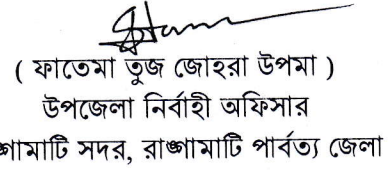 ( ফাতেমা তুজ জোহরা উপমা )
উপজেলা নির্বাহী অফিসার
সদর, রাঙ্গামাটি পার্বত্য জেলা